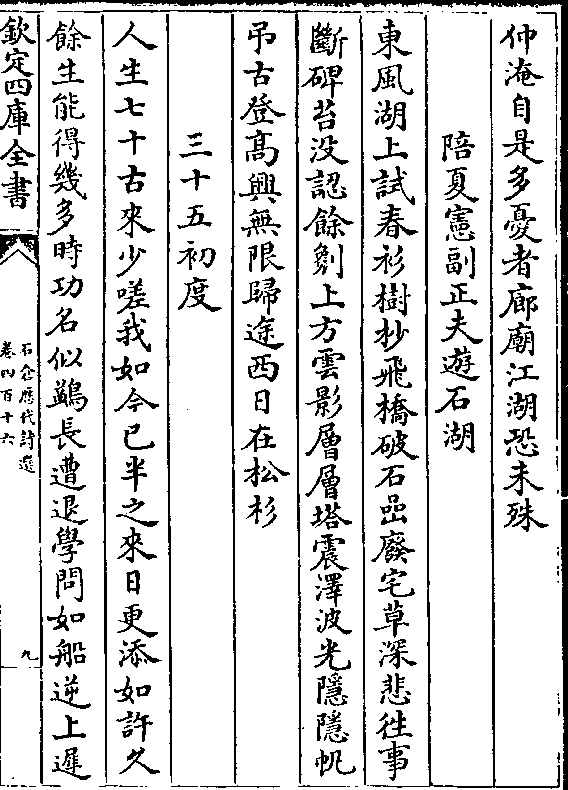 仲淹自是多憂者廊廟江湖恐未殊
陪夏憲副正夫遊石湖
東風湖上試春衫樹杪飛橋破石嵒廢宅草深悲徃事
斷碑苔没認餘劖上方雲影層層塔震澤波光隱隱帆
弔古登髙興無限歸途西日在松杉
三十五初度
人生七十古來少嗟我如今已半之來日更添如許久
餘生能得幾多時功名似鷁長遭退學問如船逆上遲
欽定四庫全書
石仓歷代詩選
卷四百十六
九